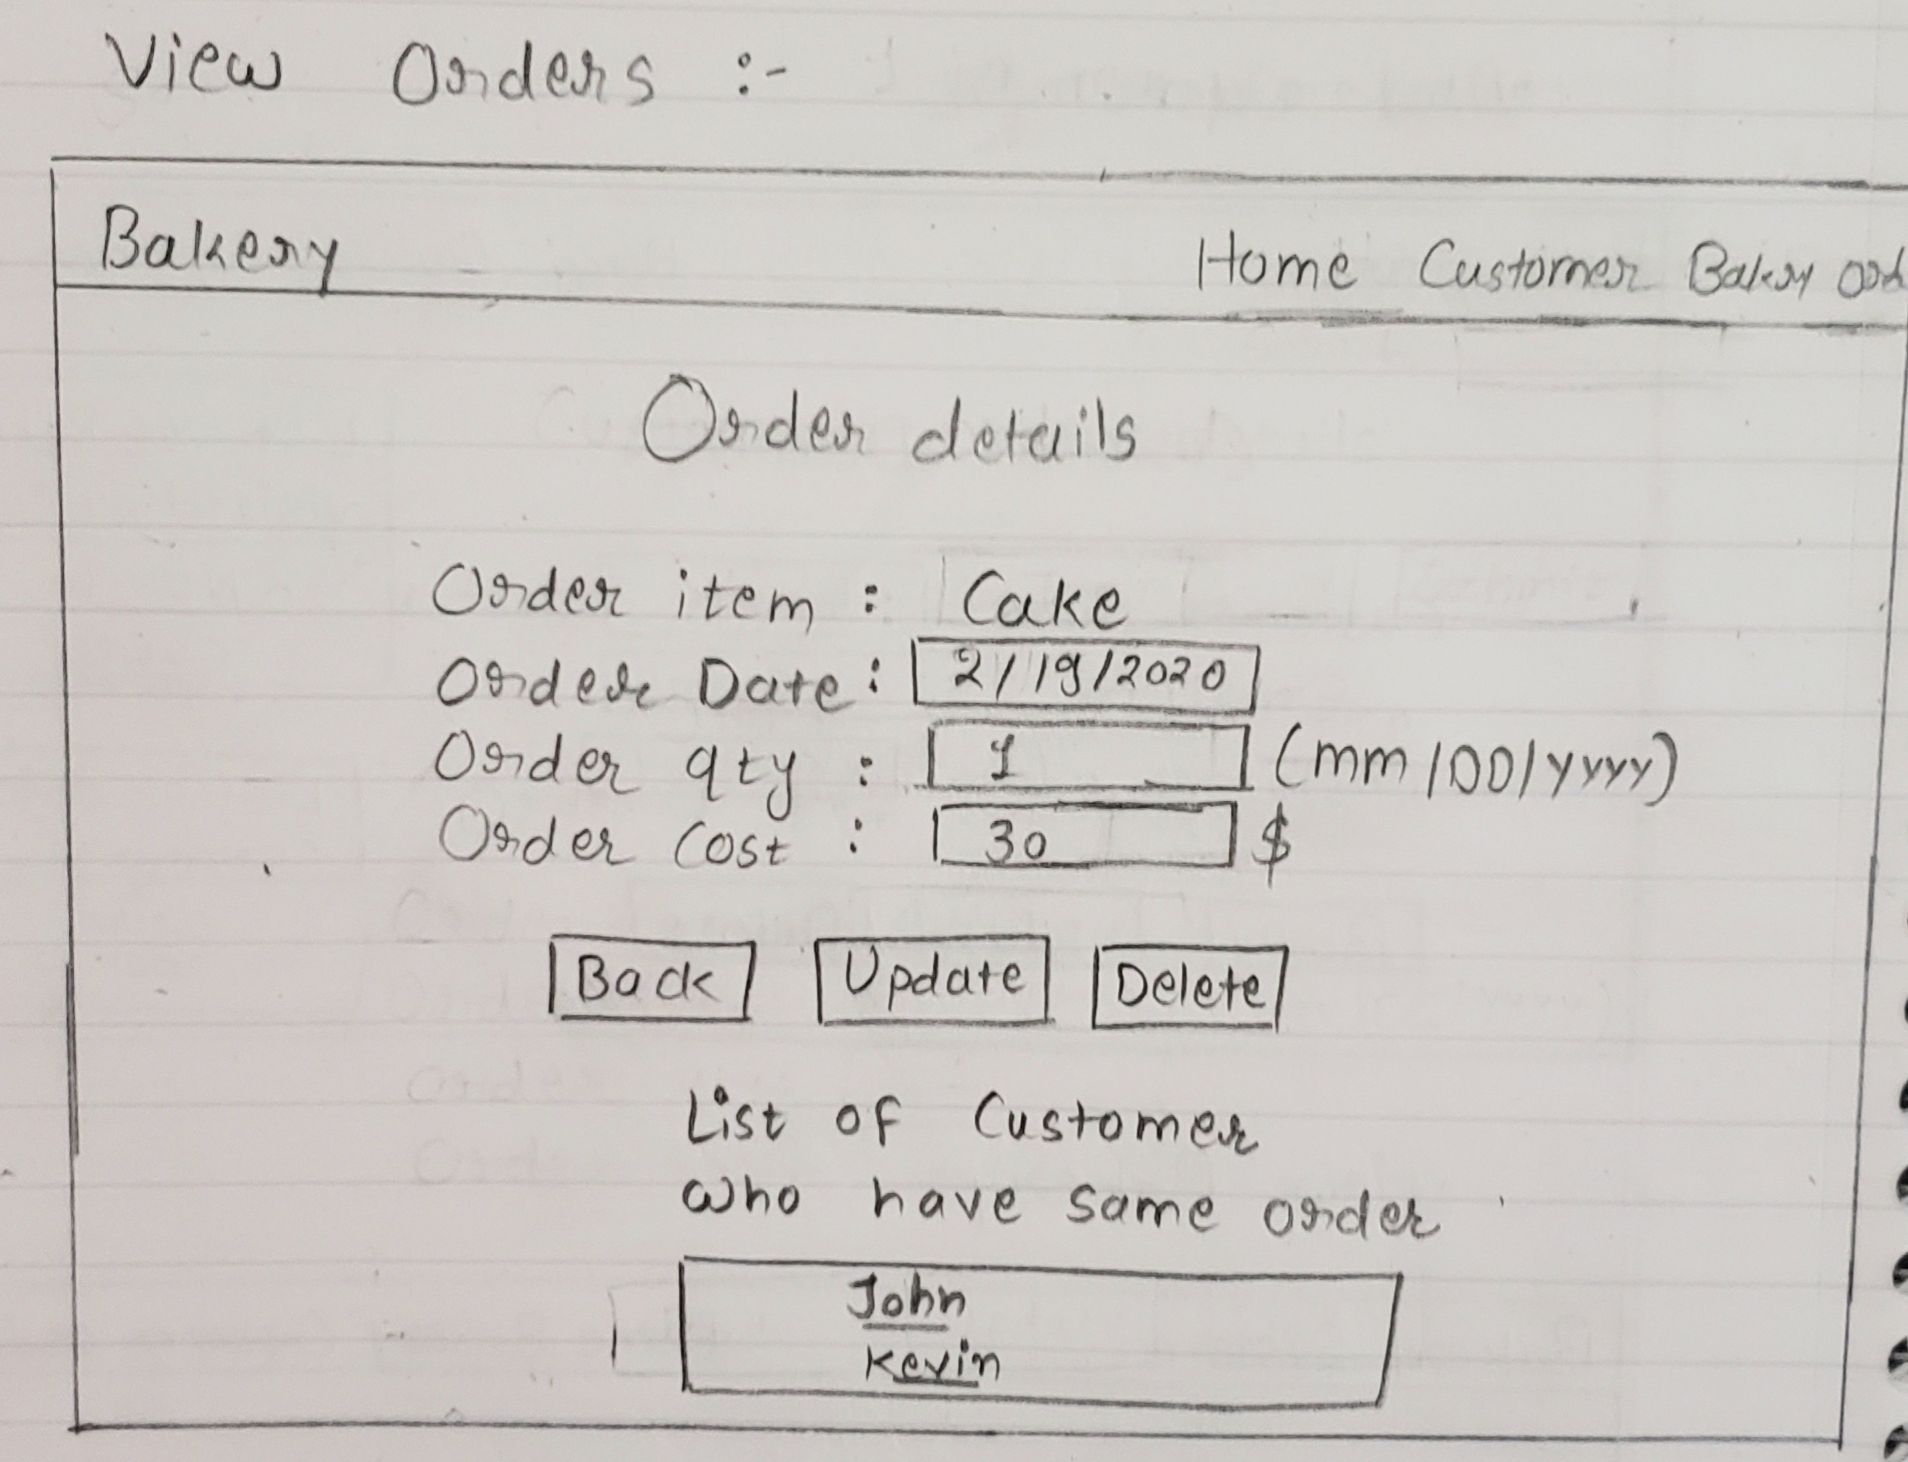 View Orders :-
Bakery Home Customer Bakery
Order details
Order item : Cake
Order Date : 2/19/2020
Order qty : 1 (mm/DD/yyyy)
Order Cost : 30 $
Back Update Delete
List of Customer
who have same order
John
Kevin